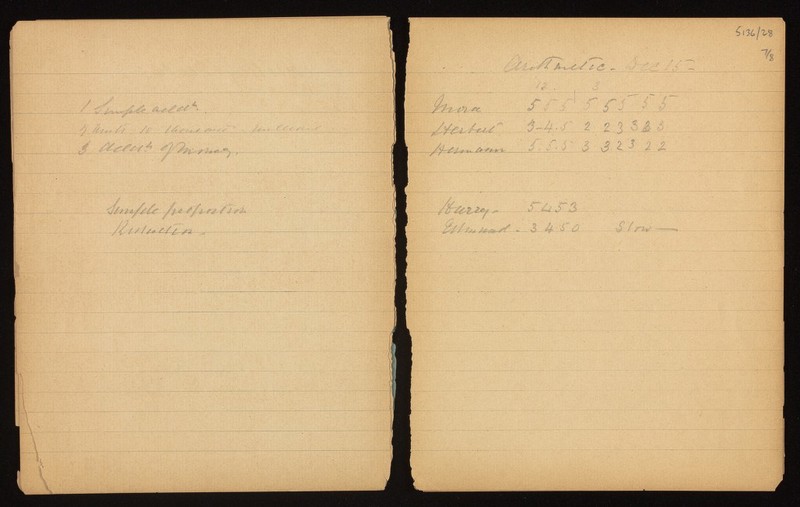 1 Simple addtn.
to thousand
3 Addtn of Money.
Simple proportion
Reduction.
5136/28
7/8
Arithmetic - Dec 15 -
12 3
Mona 5 5 5 5 5 5 5 5
Herbert 3-4.5 2 2 3 3 3
Hermann 5.5.5 3 3 2 3 2 2
Harry - 5 4 5 3
Edmund - 3 4 5 0 Slow —